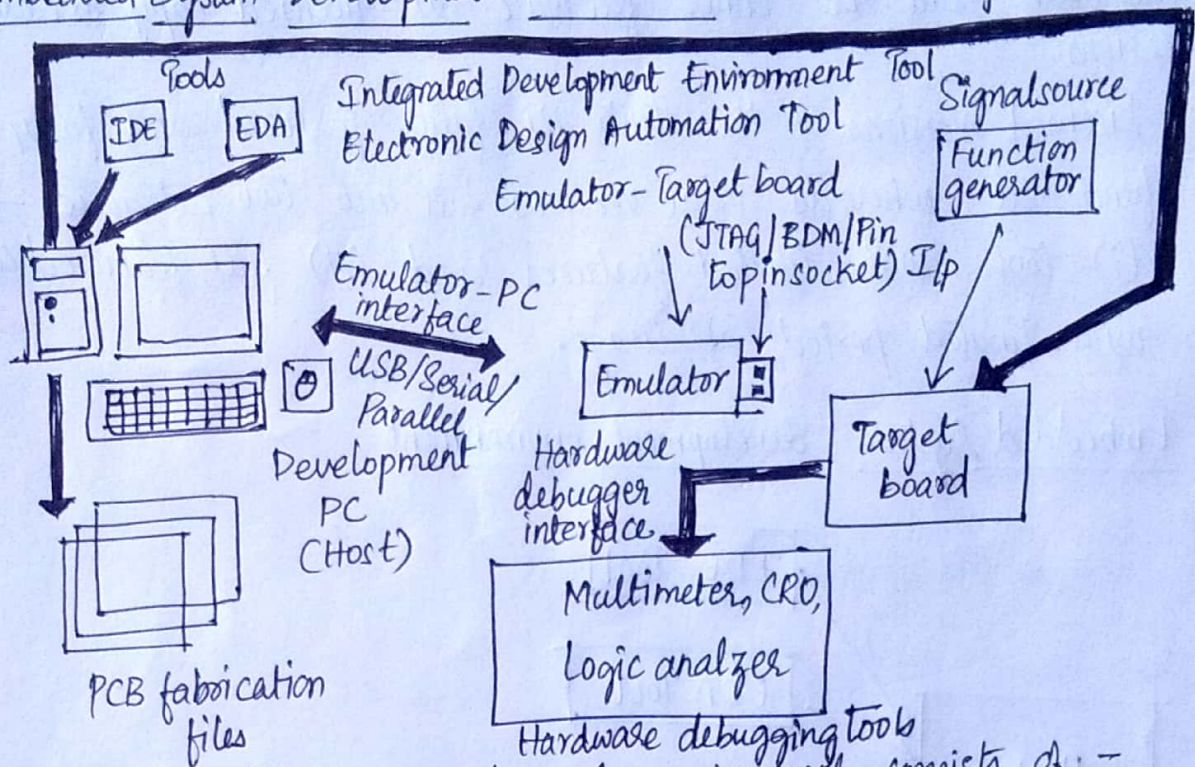 Embedded System Development
Tools
IDE
EDA
Integrated Development Environment Tool
Electronic Design Automation Tool
Signalsource
Function
generator
Emulator-Target board
(JTAG/BDM/Pin
to pin socket) I/p
Emulator-PC
interface
USB/Serial/
Parallel
Emulator
Target
board
Development
PC
(Host)
Hardware
debugger
interface
Multimeter, CRO,
Logic analzer
PCB fabrication
files
Hardware debugging tools
consists of :-